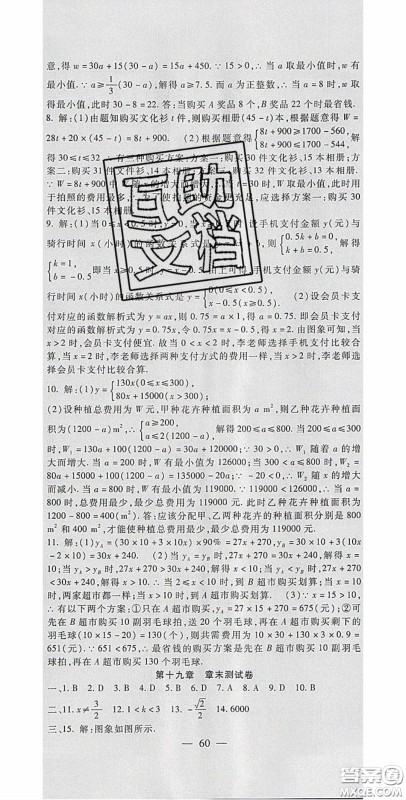 意,得 w=30a+15(30-a)=15a+450. ∵15>0,∴当 a 取最小值时,w 有
最小值. ∵a≥1/3(30-a),解得 a≥7.5. 而 a 为正整数,∴当 a=8 时,w 取
得最小值,此时 30-8=22. 答:当购买 A 奖品 8 个,B 奖品 22 个时最省钱.
8. 解:(1)由题知购买文化衫 t 件,则购买相册(45-t)本,根据题意得 W=
28t+20×(45-t)=8t+900. (2)根据题意得{8t+900≥1700-560, 8t+900≤1700-544, 解
得 30≤t≤32 ∴有三种购买方案:方案一:购买 30 件文化衫,15 本相册;方
案二:购买 31 件文化衫,14 本相册;
∵W=8t+900 中 W 随 t
30 件文化衫,15 本相册.
9. 解:(1)
手机支付金额 y(元)与
骑行时间 x(小时)的函数关系式
{0.5k+b=0, k+b=0.5, 解得
{k=1, b=-0.5,
手机支付金额 y(元)与骑
行时间 x(小时)的函数关系式是
{0(0≤x<0.5), x-0.5(x≥0.5).
(2)设会员卡支
付对应的函数解析式为 y=ax,则 0.75=a×1,得 a=0.75. 即会员卡支付对
应的函数解析式为 y=0.75x,令 0.75x=x-0.5,得 x=2. 由图象可知,当
x>2 时,会员卡支付便宜. 故当 0<x<2 时,李老师选择手机支付比较合
算,当 x=2 时,李老师选择两种支付方式的费用一样,当 x>2 时,李老师选
择会员卡支付比较合算.
10. 解:(1)y={130x(0≤x≤300), 80x+15000(x>300);
(2)设种植总费用为 W 元,甲种花卉种植面积为 a m²,则乙种花卉种植面
积为(1200-a)m²,∴{a≥200, a≤2(1200-a), 解得 200≤a≤800. 当 200≤a≤300
时,W₁=130a+100(1200-a)=30a+120000. ∵30>0,∴W₁ 随着 a 的增
大而增大. 当 a=200 时,W 有最小值为 126000;当 300<a≤800 时,W₂=
80a+15000+100(1200-a)=135000-20a. ∵-20<0,∴W₂ 随着 a 的增大
而减小. 当 a=800 时,W 有最小值为 119000. ∵119000<126000,∴当 a=
800 时,总费用最少,最少总费用为 119000 元. 此时乙种花卉种植面积为
1200-800=400(m²). 答:应该分配甲、乙两种花卉的种植面积分别是 800
m² 和 400 m²,才能使种植总费用最少,最少总费用为 119000 元.
11. 解:(1)yA=(10×30+3×10x)×90%=27x+270;yB=10×30+3(10x
-2×10)=30x+240. (2)当 yA=yB 时,27x+270=30x+240,解得 x=
10;当 yA>yB 时,27x+270>30x+240,解得 x<10;当 yA<yB 时,27x+270
<30x+240,解得 x>10. ∴当 2≤x<10 时,到 B 超市购买划算;当 x=10
时,两家超市都一样;当 x>10 时,到 A 超市购买划算. (3)∵x=15>10,
∴有以下两个方案:①只在 A 超市购买,yA=27×15+270=675(元);②可
先在 B 超市购买 10 副羽毛球拍,送 20 个羽毛球后,再在 A 超市购买剩下的
羽毛球(10×15-20)=130(个),则共需费用为 10×30+130×3×0.9=
651(元). ∵651<675,∴最省钱的购买方案是先在 B 超市购买 10 副羽毛
球拍,再在 A 超市购买 130 个羽毛球.
第十九章 章末测试卷
一、1. B 2. D 3. D 4. A 5. D 6. B 7. D 8. C 9. B 10. D
二、11. x≠3/2 12. 1<k<3 13. -√2/2 14. 6000
三、15. 解:图象如图所示.
— 60 —